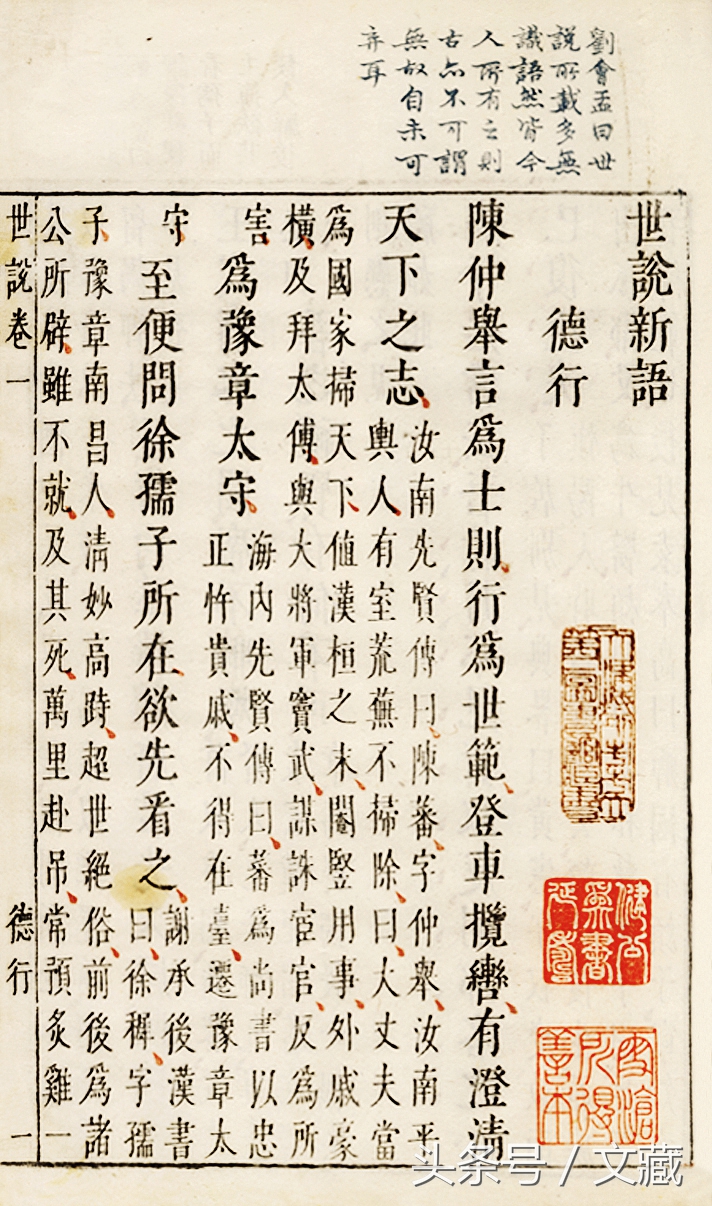 劉會孟曰世
說所載多無
識語然皆今
人所有之則
古亦不可謂
無故自未可
弃耳
世說新語
德行
陳仲舉言爲士則行爲世範登車攬轡有澄清
天下之志
汝南先賢傳曰陳蕃字仲舉汝南平
輿人有室荒蕪不掃除曰大丈夫當
爲國家掃天下值漢桓之末閹豎用事外戚豪
橫及拜太傅與大將軍竇武謀誅宦官反爲所
害
爲豫章太守
海內先賢傳曰蕃爲尚書以忠
正忤貴戚不得在臺遷豫章太
守
至便問徐孺子所在欲先看之
謝承後漢書
曰徐穉字孺
子豫章南昌人清妙高跱超世絕俗前後爲諸
公所辟雖不就及其死萬里赴吊常預炙雞一
世說卷一
德行
一
雪滄
所得
善本
头条号 / 文藏